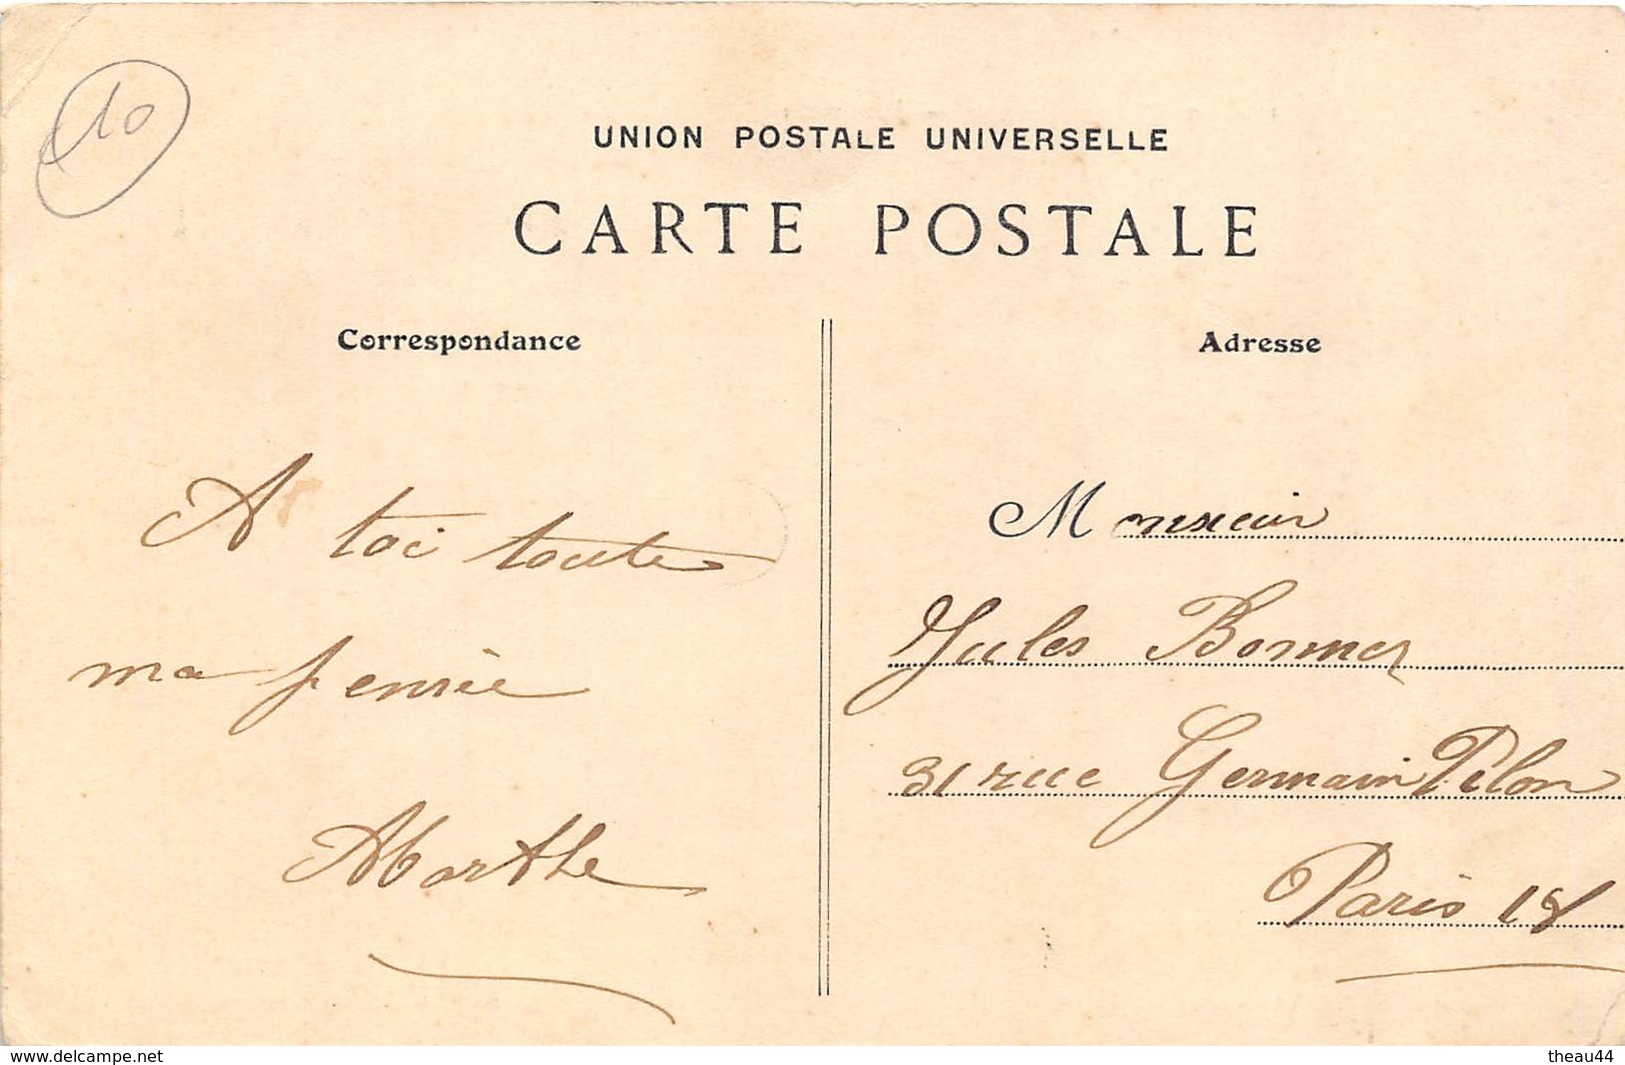 10
UNION POSTALE UNIVERSELLE
CARTE POSTALE
Correspondance
A toi toute
ma pensée
Marthe
Adresse
Monsieur
Jules Bonner
31 rue Germain Pilon
Paris 18
www.delcampe.net
theau44